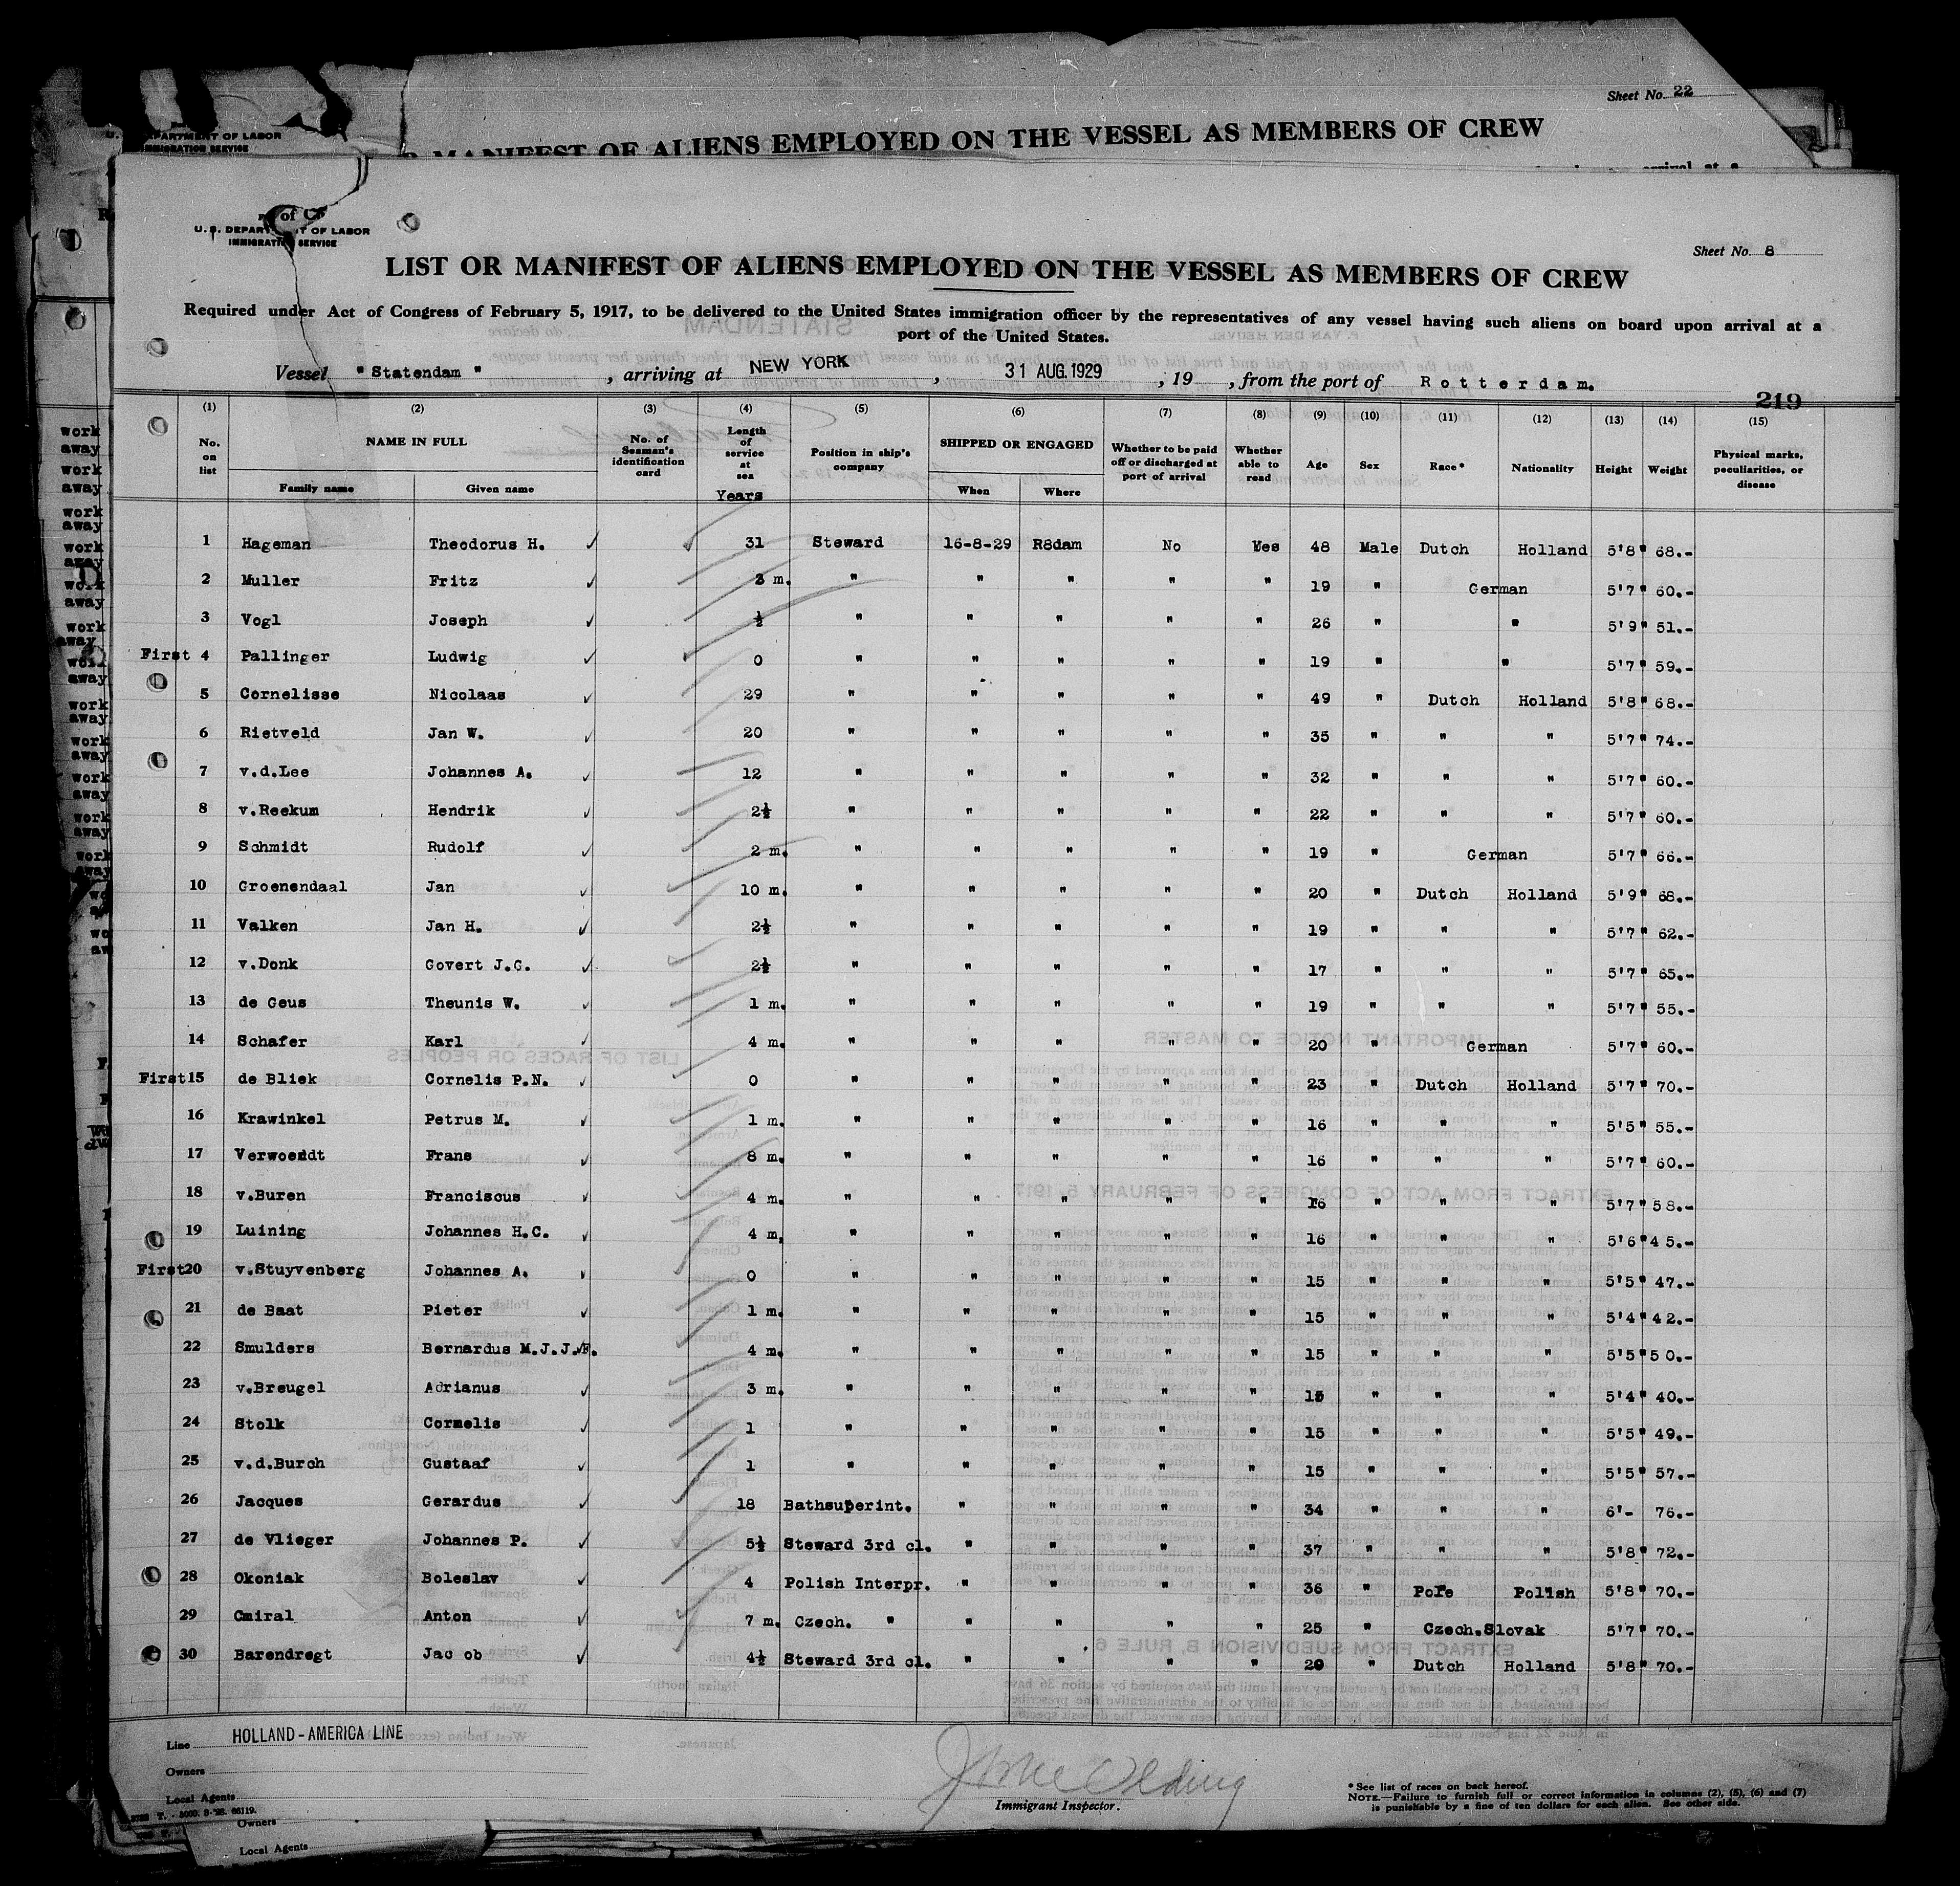 Sheet No. 22
U. S. DEPARTMENT OF LABOR
IMMIGRATION SERVICE
MANIFEST OF ALIENS EMPLOYED ON THE VESSEL AS MEMBERS OF CREW
arrival at a
of
U. S. DEPARTMENT OF LABOR
IMMIGRATION SERVICE
Sheet No. 8
LIST OR MANIFEST OF ALIENS EMPLOYED ON THE VESSEL AS MEMBERS OF CREW
Required under Act of Congress of February 5, 1917, to be delivered to the United States immigration officer by the representatives of any vessel having such aliens on board upon arrival at a
port of the United States.
Vessel "Statendam", arriving at NEW YORK, 31 AUG. 1929, 19 , from the port of Rotterdam.
219
(1) (2) (3) (4) (5) (6) (7) (8) (9) (10) (11) (12) (13) (14) (15)
No. on list NAME IN FULL No. of Seaman's identification card Length of service at sea Position in ship's company SHIPPED OR ENGAGED Whether to be paid off or discharged at port of arrival Whether able to read Age Sex Race* Nationality Height Weight Physical marks, peculiarities, or disease
Family name Given name Years When Where
1 Hageman Theodorus H. 31 Steward 16-8-29 R8dam No Yes 48 Male Dutch Holland 5'8" 68.-
2 Muller Fritz 3 m. " " " " " 19 " German 5'7" 60.-
3 Vogl Joseph ½ " " " " " 26 " " 5'9" 51.-
First 4 Pallinger Ludwig 0 " " " " " 19 " " 5'7" 59.-
5 Cornelisse Nicolaas 29 " " " " " 49 " Dutch Holland 5'8" 68.-
6 Rietveld Jan W. 20 " " " " " 35 " " " 5'7" 74.-
7 v.d.Lee Johannes A. 12 " " " " " 32 " " " 5'7" 60.-
8 v.Reekum Hendrik 2½ " " " " " 22 " " " 5'7" 60.-
9 Schmidt Rudolf 2 m. " " " " " 19 " German 5'7" 66.-
10 Groenendaal Jan 10 m. " " " " " 20 " Dutch Holland 5'9" 68.-
11 Valken Jan H. 2½ " " " " " 19 " " " 5'7" 62.-
12 v.Donk Govert J.G. 2½ " " " " " 17 " " " 5'7" 65.-
13 de Geus Theunis W. 1 m. " " " " " 19 " " " 5'7" 55.-
14 Schafer Karl 4 m. " " " " " 20 " German 5'7" 60.-
First 15 de Bliek Cornelis P.N. 0 " " " " " 23 " Dutch Holland 5'7" 70.-
16 Krawinkel Petrus M. 1 m. " " " " " 16 " " " 5'5" 55.-
17 Verwoerdt Frans 8 m. " " " " " 16 " " " 5'7" 60.-
18 v.Buren Franciscus 4 m. " " " " " 16 " " " 5'7" 58.-
19 Luining Johannes H.C. 4 m. " " " " " 16 " " " 5'6" 45.-
First 20 v.Stuyvenberg Johannes A. 0 " " " " " 15 " " " 5'5" 47.-
21 de Baat Pieter 1 m. " " " " " 15 " " " 5'4" 42.-
22 Smulders Bernardus M.J.J.F. 4 m. " " " " " 15 " " " 5'5" 50.-
23 v.Breugel Adrianus 3 m. " " " " " 15 " " " 5'4" 40.-
24 Stolk Cornelis 1 " " " " " 15 " " " 5'5" 49.-
25 v.d.Burch Gustaaf 1 " " " " " 15 " " " 5'5" 57.-
26 Jacques Gerardus 18 Bathsuperint. " " " " 34 " " " 6'- 76.-
27 de Vlieger Johannes P. 5½ Steward 3rd cl. " " " " 37 " " " 5'8" 72.-
28 Okoniak Boleslav 4 Polish Interpr. " " " " 36 " Pole Polish 5'8" 70.-
29 Cmiral Anton 7 m. Czech. " " " " " 25 " Czech.Slovak 5'7" 70.-
30 Barendregt Jac ob 4½ Steward 3rd cl. " " " " 20 " Dutch Holland 5'8" 70.-
Line HOLLAND-AMERICA LINE
Owners
Local Agents
Immigrant Inspector.
*See list of races on back hereof.
NOTE.—Failure to furnish full or correct information in columns (2), (5), (6) and (7)
is punishable by a fine of ten dollars for each alien. See other side.
Owners
Local Agents